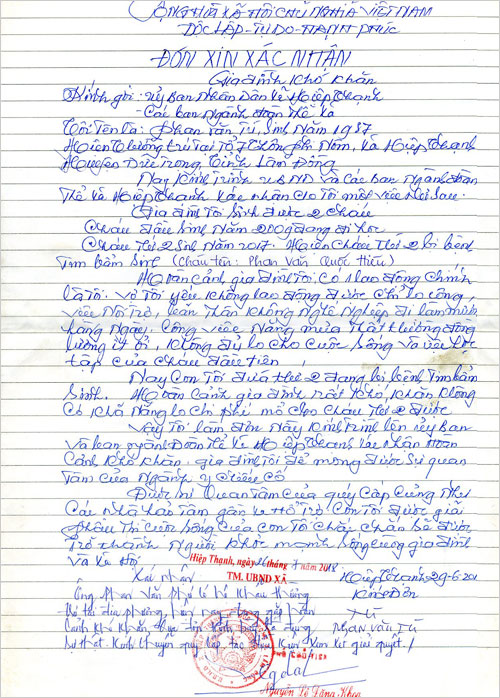 CỘNG HÒA XÃ HỘI CHỦ NGHĨA VIỆT NAM
ĐỘC LẬP - TỰ DO - HẠNH PHÚC
ĐƠN XIN XÁC NHẬN
Gia đình khó khăn
Kính gởi: Uỷ Ban Nhân Dân xã Hiệp Thạnh
- Các ban Ngành đoàn Thể xã
Tôi Tên là: Phan Văn Tú, Sinh Năm 1987
Hiện Thường trú Tại Tổ 7 Thôn Phi Nôm, xã Hiệp Thạnh
Huyện Đức Trọng, Tỉnh Lâm Đồng
Nay Kính Trình UBND và Các Ban Ngành đoàn
Thể xã Hiệp Thạnh xác nhận cho Tôi một việc Như Sau:
Gia đình Tôi Sinh được 2 cháu
Cháu đầu Sinh Năm đang đi học
Cháu Thứ 2 Sinh Năm 2017. Hiện Cháu Thứ 2 bị bệnh
Tim bẩm Sinh (Cháu tên: Phan Văn Quốc Hiếu)
Hoàn cảnh gia đình Tôi: Có 1 lao động chính
là Tôi. Vợ Tôi yếu không lao động được chỉ lo công
việc Nội Trợ, bản Thân không Nghề Nghiệp đi làm mướn
hàng Ngày. Công việc Nắng mưa Thất thường đồng
lương ít ỏi, không đủ lo cho Cuộc Sống và việc học
tập của Cháu đầu tiên
Nay Con Tôi đứa thứ 2 đang bị bệnh Tim bẩm
Sinh. Hoàn cảnh gia đình rất khó khăn không
Có khả Năng lo chi phí mổ cho cháu Thứ 2 được
Vậy Tôi làm đơn Này Kính Trình lên ủy Ban
Và ban ngành Đoàn Thể xã Hiệp Thạnh xác Nhận Hoàn
Cảnh khó khăn, gia đình Tôi để mong được Sự quan
Tâm của Ngành
Được Sự Quan Tâm của quý Cấp Cũng Như
Các Nhà hảo Tâm gần xa Hỗ Trợ Con Tôi được giải
phẫu Thì cuộc Sống của con Tôi chắc chắn Sẽ được
Trở thành Người khỏe mạnh Sống cùng gia đình
và xã Hội
Hiệp Thạnh, ngày 26 tháng 7 năm 2018
Xác nhận TM. UBND XÃ Hiệp Thạnh
Kính Đơn
Ông Phan Văn Tú có hộ khẩu thường
trú tại địa phương, hiện nay đang gặp hoàn Tú
Cảnh khó khăn, Phan Văn Tú
Sự thật. Kính chuyển cấp trên xem xét giải quyết./
PHÓ CHỦ TỊCH
Nguyễn Đăng Khoa